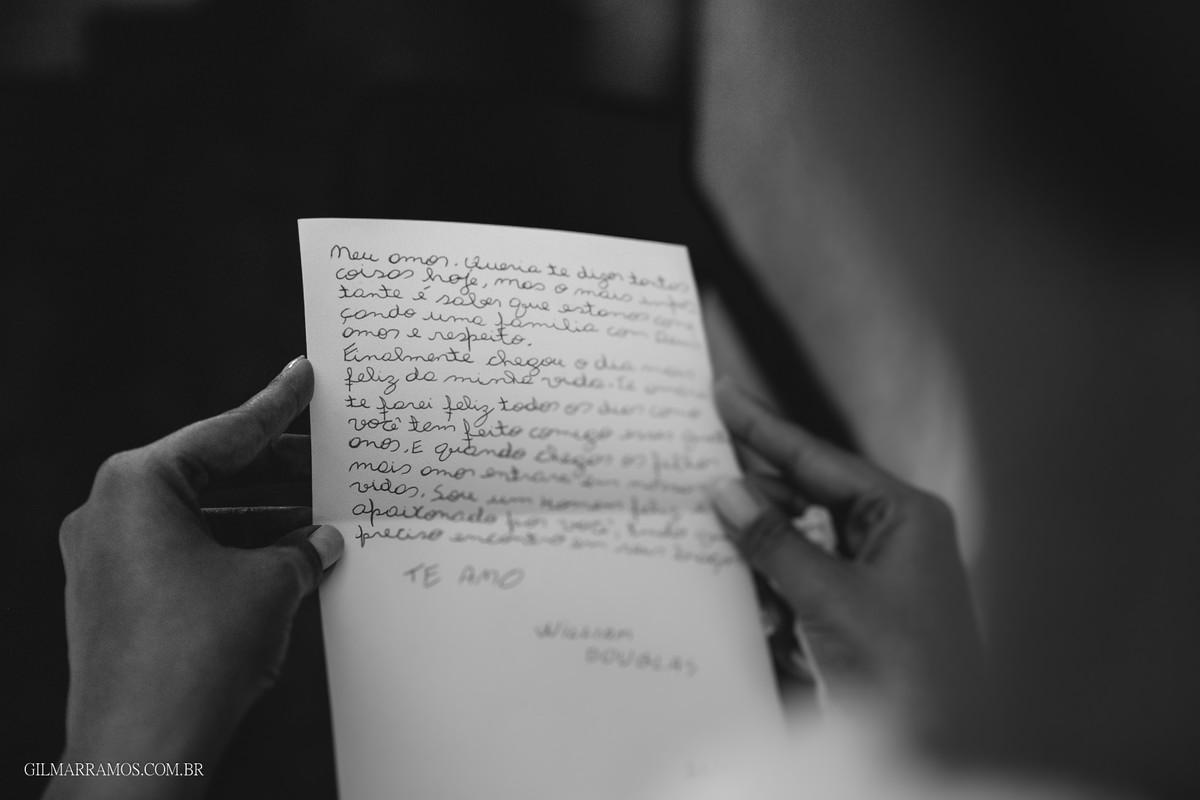 Meu amor. Queria te dizer tantas
coisas hoje, mas o mais impor
tante é saber que estamos come
çando uma família com
amor e respeito.
Finalmente chegou o dia mais
feliz da minha vida. Te
te farei feliz todos os dias como
você tem feito comigo esses
anos. E quando chegar os filhos
mais amor entrará em nossas
vidas. Sou um homem feliz e
apaixonado por você, tudo que
preciso encontro em seus braços
TE AMO
William
DOUGLAS
GILMARRAMOS.COM.BR